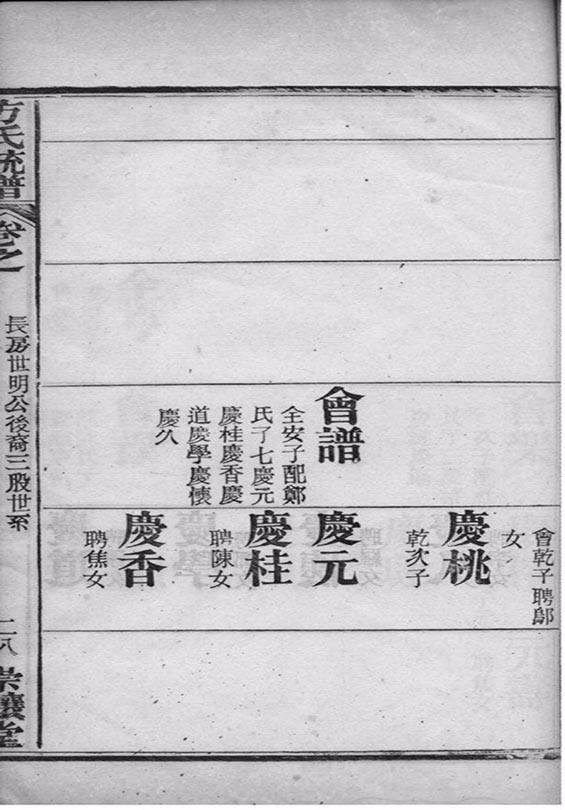 會乾子聘鄔
女
慶桃
乾次子
慶元
慶桂
聘陳女
慶香
聘焦女
會譜
全安子配鄭
氏子七慶元
慶桂慶香慶
道慶學慶懷
慶久
方氏統譜
卷之
長房世明公後裔三股世系
二八
崇讓堂